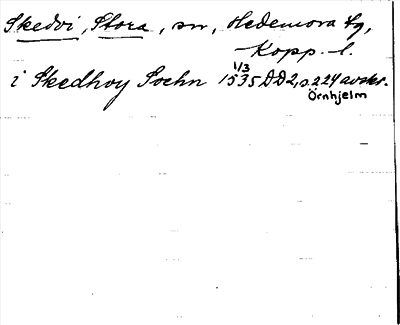 Skedvi, Stora, sn, Hedemora tg,
Kopp. l.
i Skedhvy Sochn 1/3 1535 DD2, s. 224 avskr.
Örnhjelm